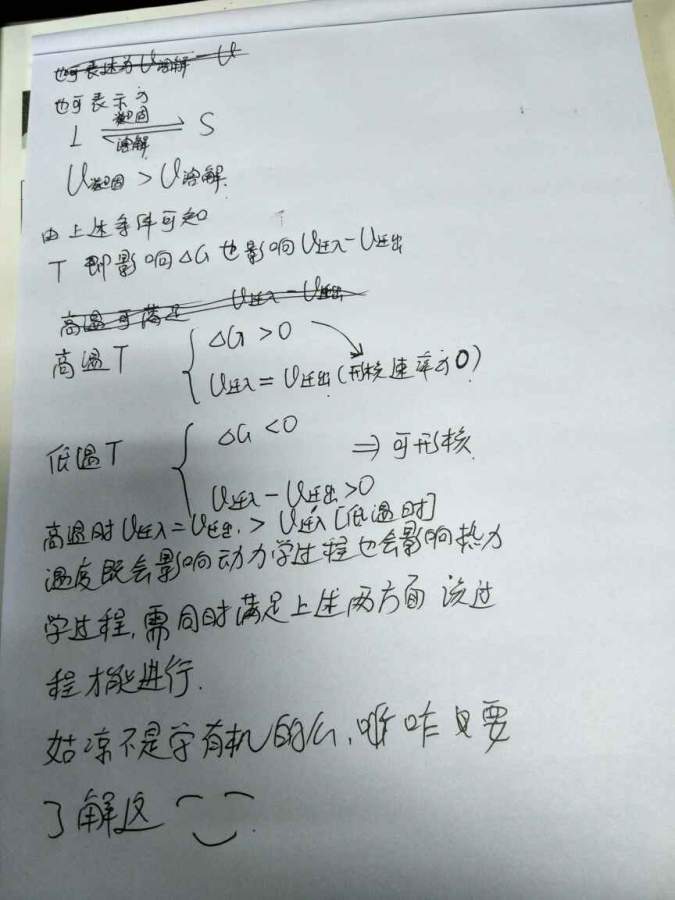 也可表述为U溶解-U
也可表示为
L 凝固 S
溶解
U凝固 > U溶解
由上述条件可知
T 即影响ΔG也影响U迁入-U迁出
高温可满足 U迁入-U迁出
高温T { ΔG>0
U迁入=U迁出(形核速率为0)
低温T { ΔG<0 ⇒可形核
U迁入-U迁出>0
高温时U迁入=U迁出>U迁入[低温时]
温度既会影响动力学过程也会影响热力
学过程,需同时满足上述两方面 该过
程才能进行.
姑凉不是学有机的么,咋只要
了解这